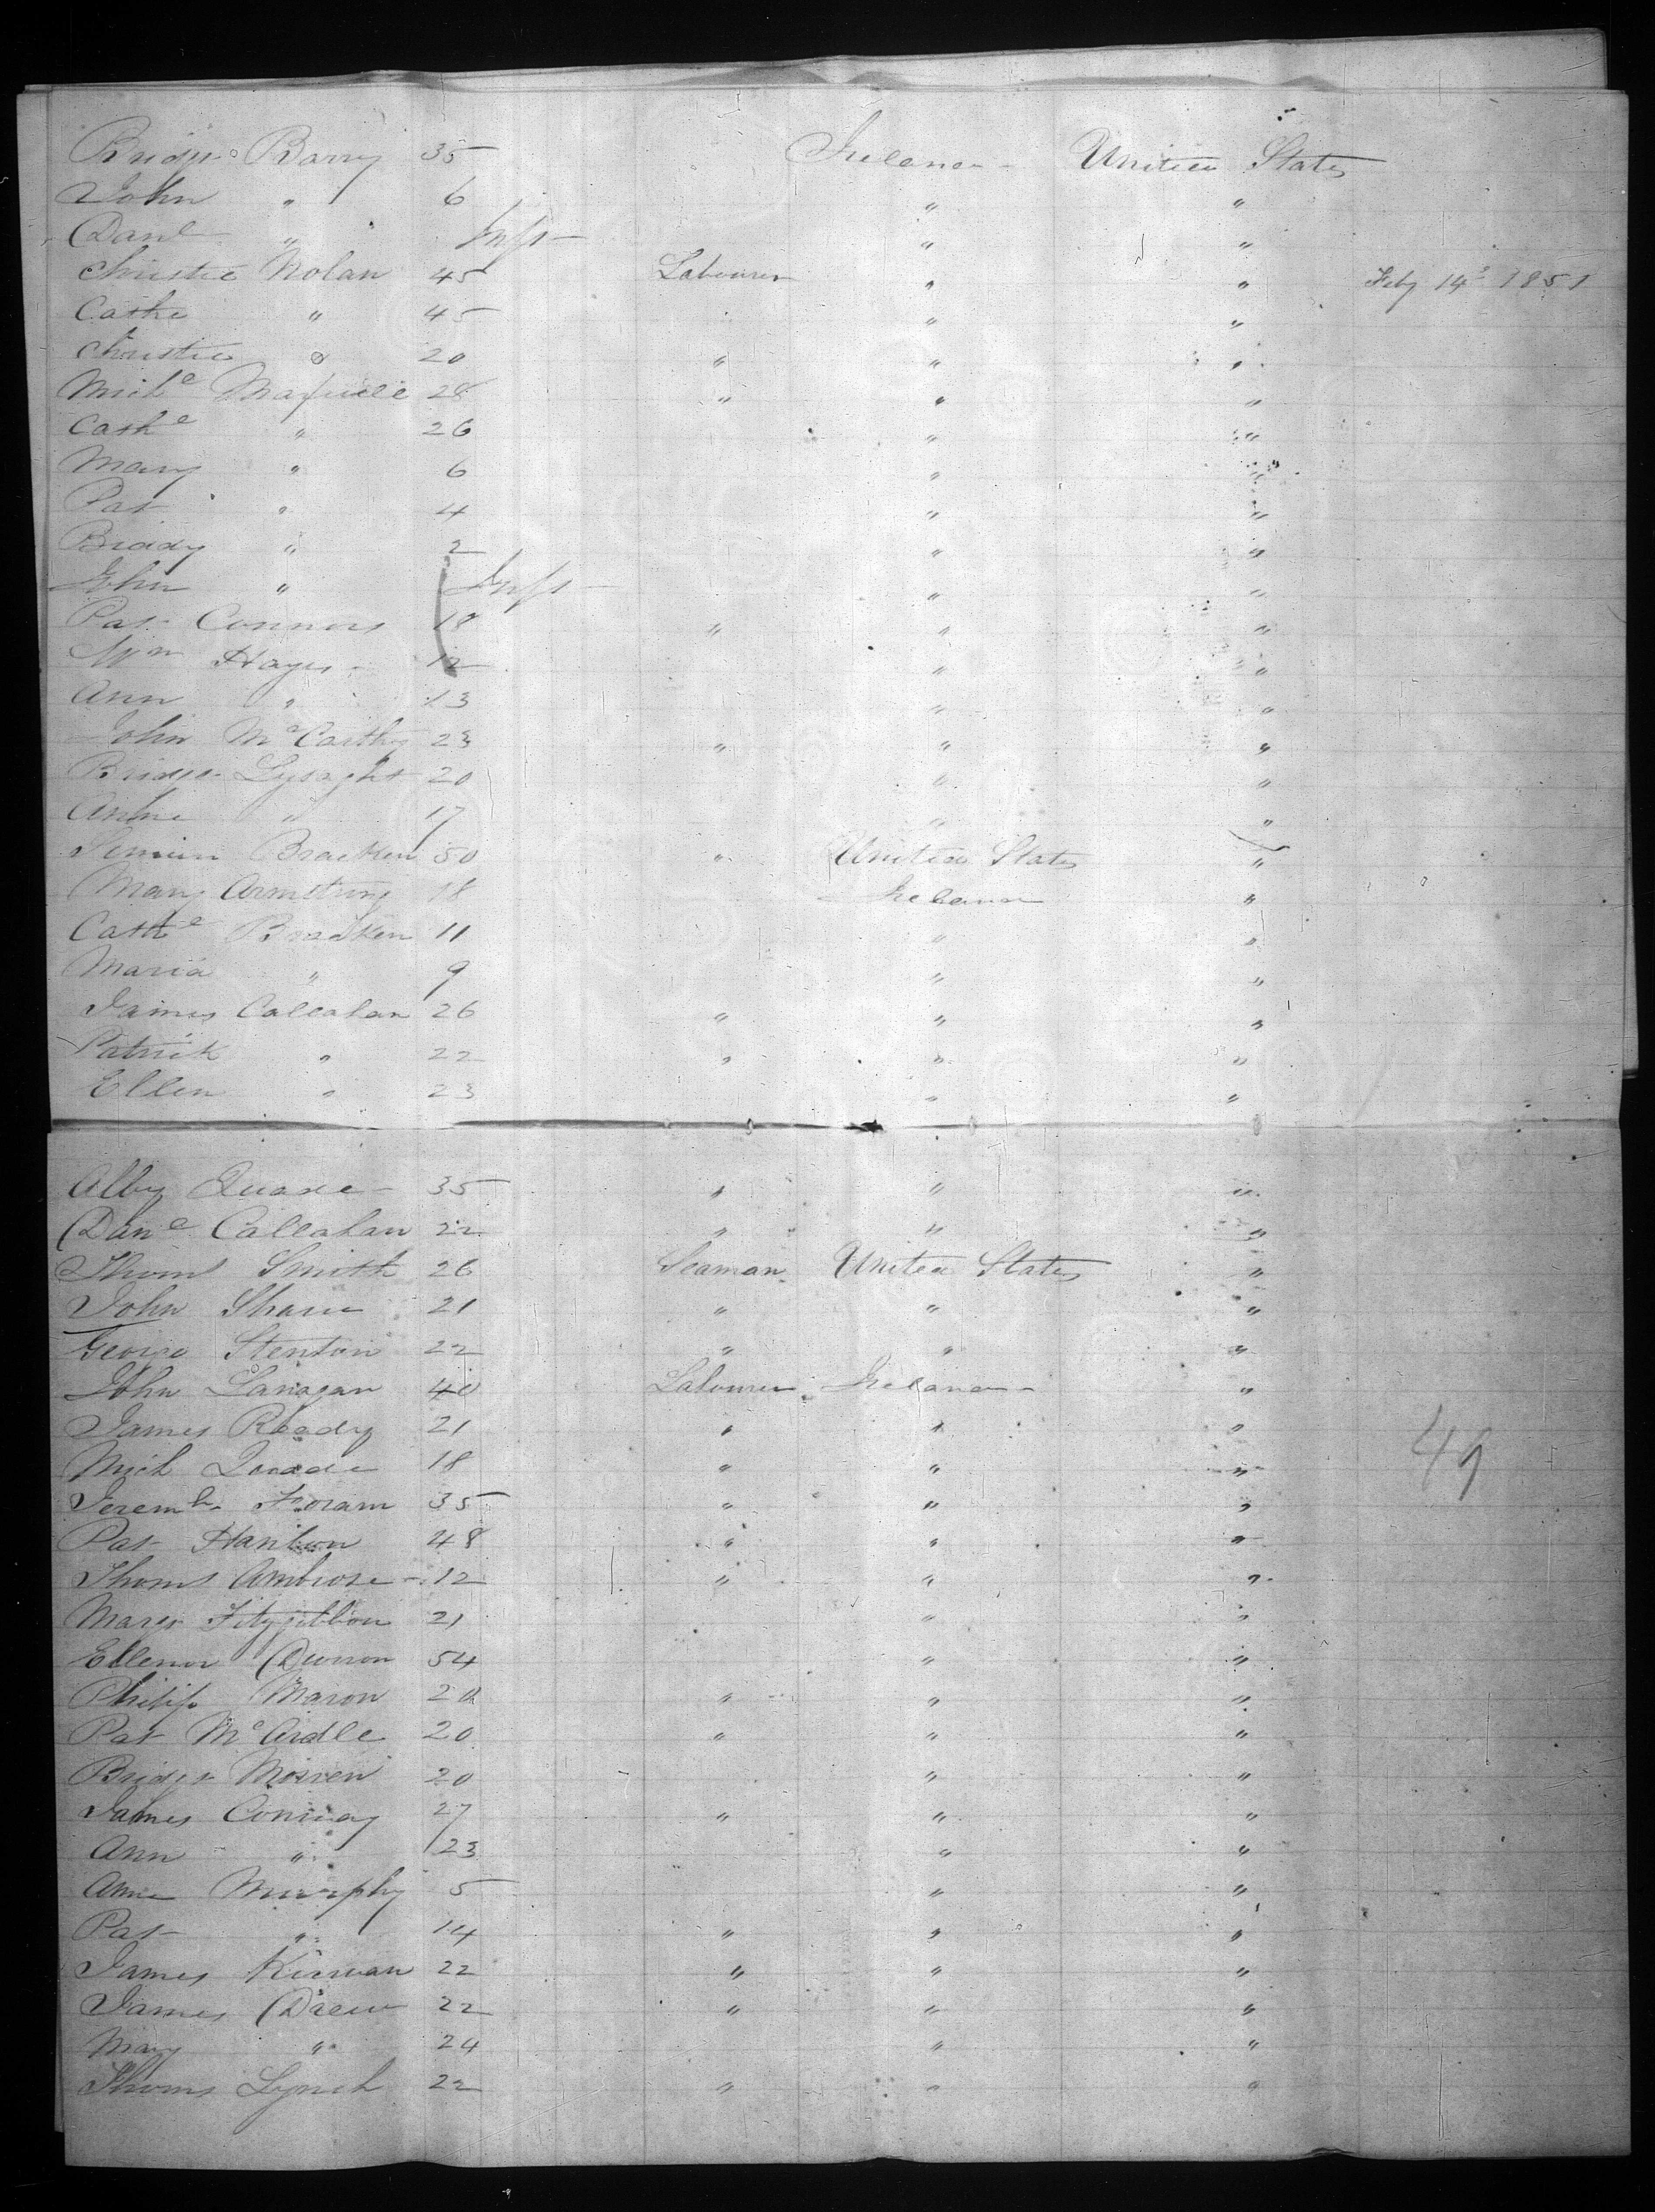 Bridgt Barry 35 Ireland United States
John " 6 " "
Danl " Inft " "
Christie Nolan 45 Labourer " " Feby 14th 1851
Cathe " 45 " "
Christie " 20 " " "
Michl 28 " " "
Cathe " 26 " "
Mary " 6 " "
Pat " 4 " "
Biddy " 2 " "
John " Inft " "
Pat Connors 18 " " "
Wm Hayes 12 " "
Ann " 13 " "
John McCarthy 23 " " "
Bridgt Lysaght 20 " "
Anne " 17 " "
Bracken 50 " United States "
Mary Armstrong 18 Ireland "
Cathe Bracken 11 " "
Maria " 9 " "
James Callahan 26 " " "
Patrick " 22 " " "
Ellen " 23 " "
Alby 35 " " "
Danl Callahan 22 " " "
Thoms Smith 26 Seaman United States "
John Shaw 21 " " "
George Stenton 22 " " "
John Lanagan 40 Labourer Ireland "
James Roady 21 " " "
Mich 18 " " "
Jeremh Foram 35 " " "
Pat Hanlon 48 " " "
Thoms Ambrose 12 " " "
Margt Fitzgibbon 21 " "
Ellenor 54 " "
Philip Maron 20 " " "
Pat McArdle 20 " " "
Bridgt 20 " "
James Conway 27 " " "
Ann " 23 " "
Anne Murphy 5 " "
Pat " 14 " " "
James Kirwan 22 " " "
James Drew 22 " " "
Mary " 24 " "
Thoms Lynch 22 " " "
49